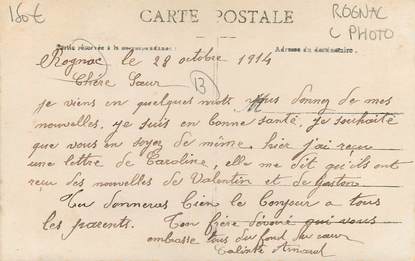 150€
CARTE POSTALE
ROGNAC
C PHOTO
Partie réservée à la correspondance
Adresse du destinataire.
Rognac le 28 octobre 1914
Chére Sœur
13
je viens en quelques mots vous donner de mes
nouvelles, je suis en bonne santé, je souhaite
que vous en soyez de même, hier j'ai reçu
une lettre de Caroline, elle me dit qu'ils ont
reçu des nouvelles de Valentin et de Gaston
Tu donneras bien le bonjour a tous
les parents. Ton frère dévoué qui vous
embrasse tous du fond du cœur